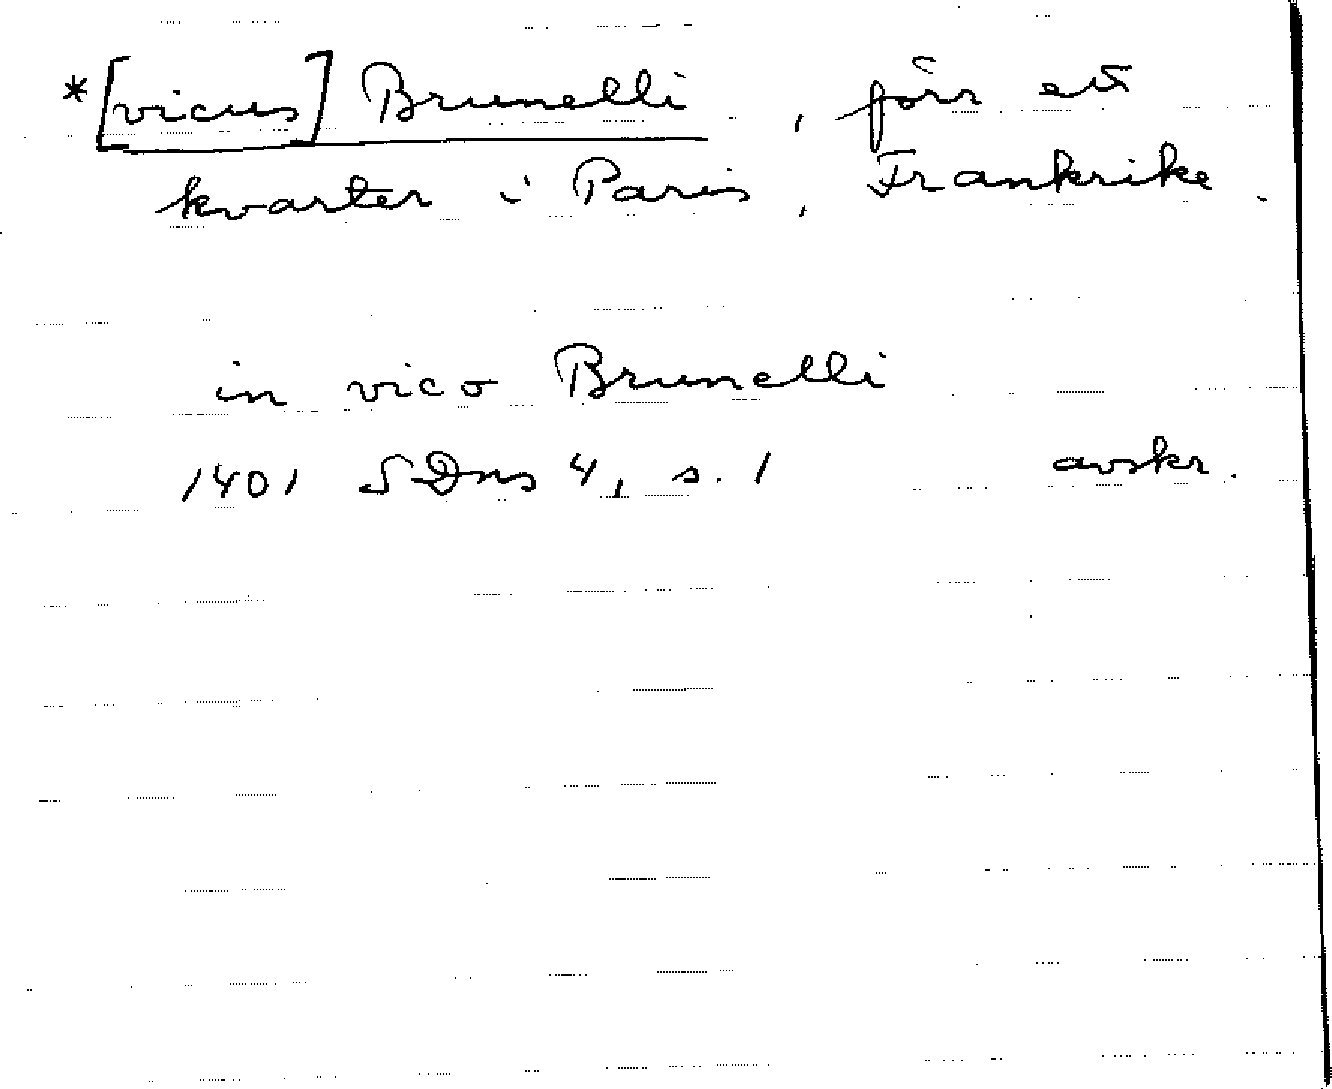 *[vicus] Brunelli, förr ett
kvarter i Paris, Frankrike.
in vico Brunelli
1401 SDns 4, s. 1 avskr.